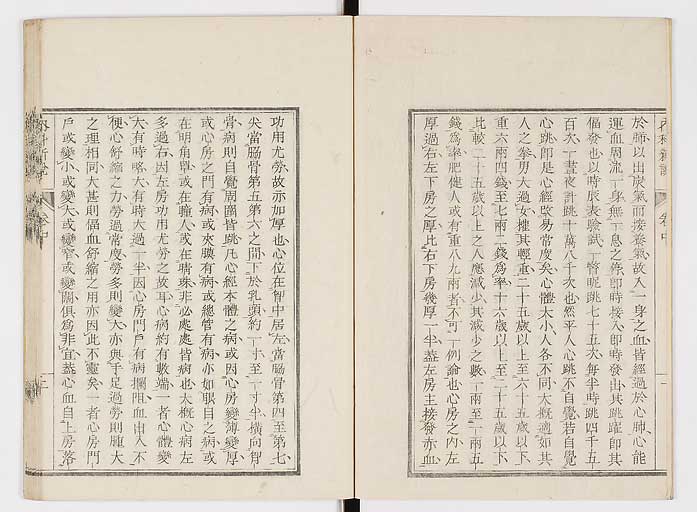 於肺以出炭氣而接養氣故人一身之血皆經過於心肺心能
運血周流一身無一息之停卽時接入卽時發出其跳躍卽其
偪發也以時辰表驗試一瞥眤跳七十五次每半時跳四千五
百次一晝夜計跳十萬八千次也然平人心跳不自覺若自覺
心跳卽是心經改易常度矣心體大小人各不同大概適如其
人之拳男大過女權其輕重二十五歲以上至六十五歲以下
重六兩四錢至七兩二錢爲率十六歲以上至二十五歲以下
比較二十五歲以上之人應減少其減少之數一兩至一兩五
錢爲率肥健人或有重八九兩者不可一例論也心房之內左
厚過右左下房之厚比右下房幾厚一半蓋左房主接發赤血
功用尤勞故亦如厚也心位在胷中居左當脇骨第四至第七
尖當脇骨第五第六之間下於乳頭約一寸至一寸半橫向胷
骨病則自覺周圍皆跳凡心經本體之病或因心房變薄變厚
或心房之門有病或夾膜有病或總管有病亦如眼目之病或
在明角罩或在瞳人或在睛珠非必處處皆病也大概心病左
多過右因左房功用尤勞之故耳心病約有數端一者心體變
大有時略大有時大過一半因心房門戶有病攔阻血出入不
便心舒縮之力勞過常度勞多則變大亦與手足過勞則腫大
之理相同大甚則偪血舒縮之用亦因此不靈矣一者心房門
戶或變小或變大或變窄或變闊俱爲非宜蓋心血自上房落
卷中